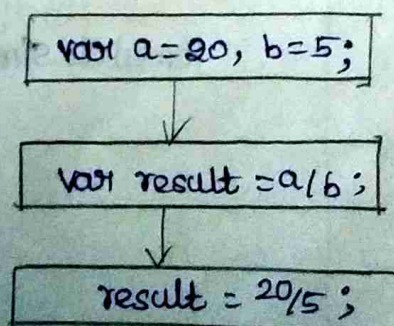 var a=20, b=5;
var result =a/b;
result = 20/5;